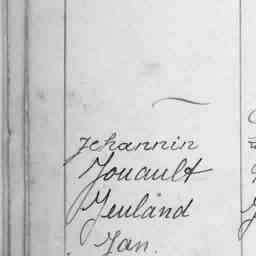 Jehannin
Jouault
Jeuland
Jan.